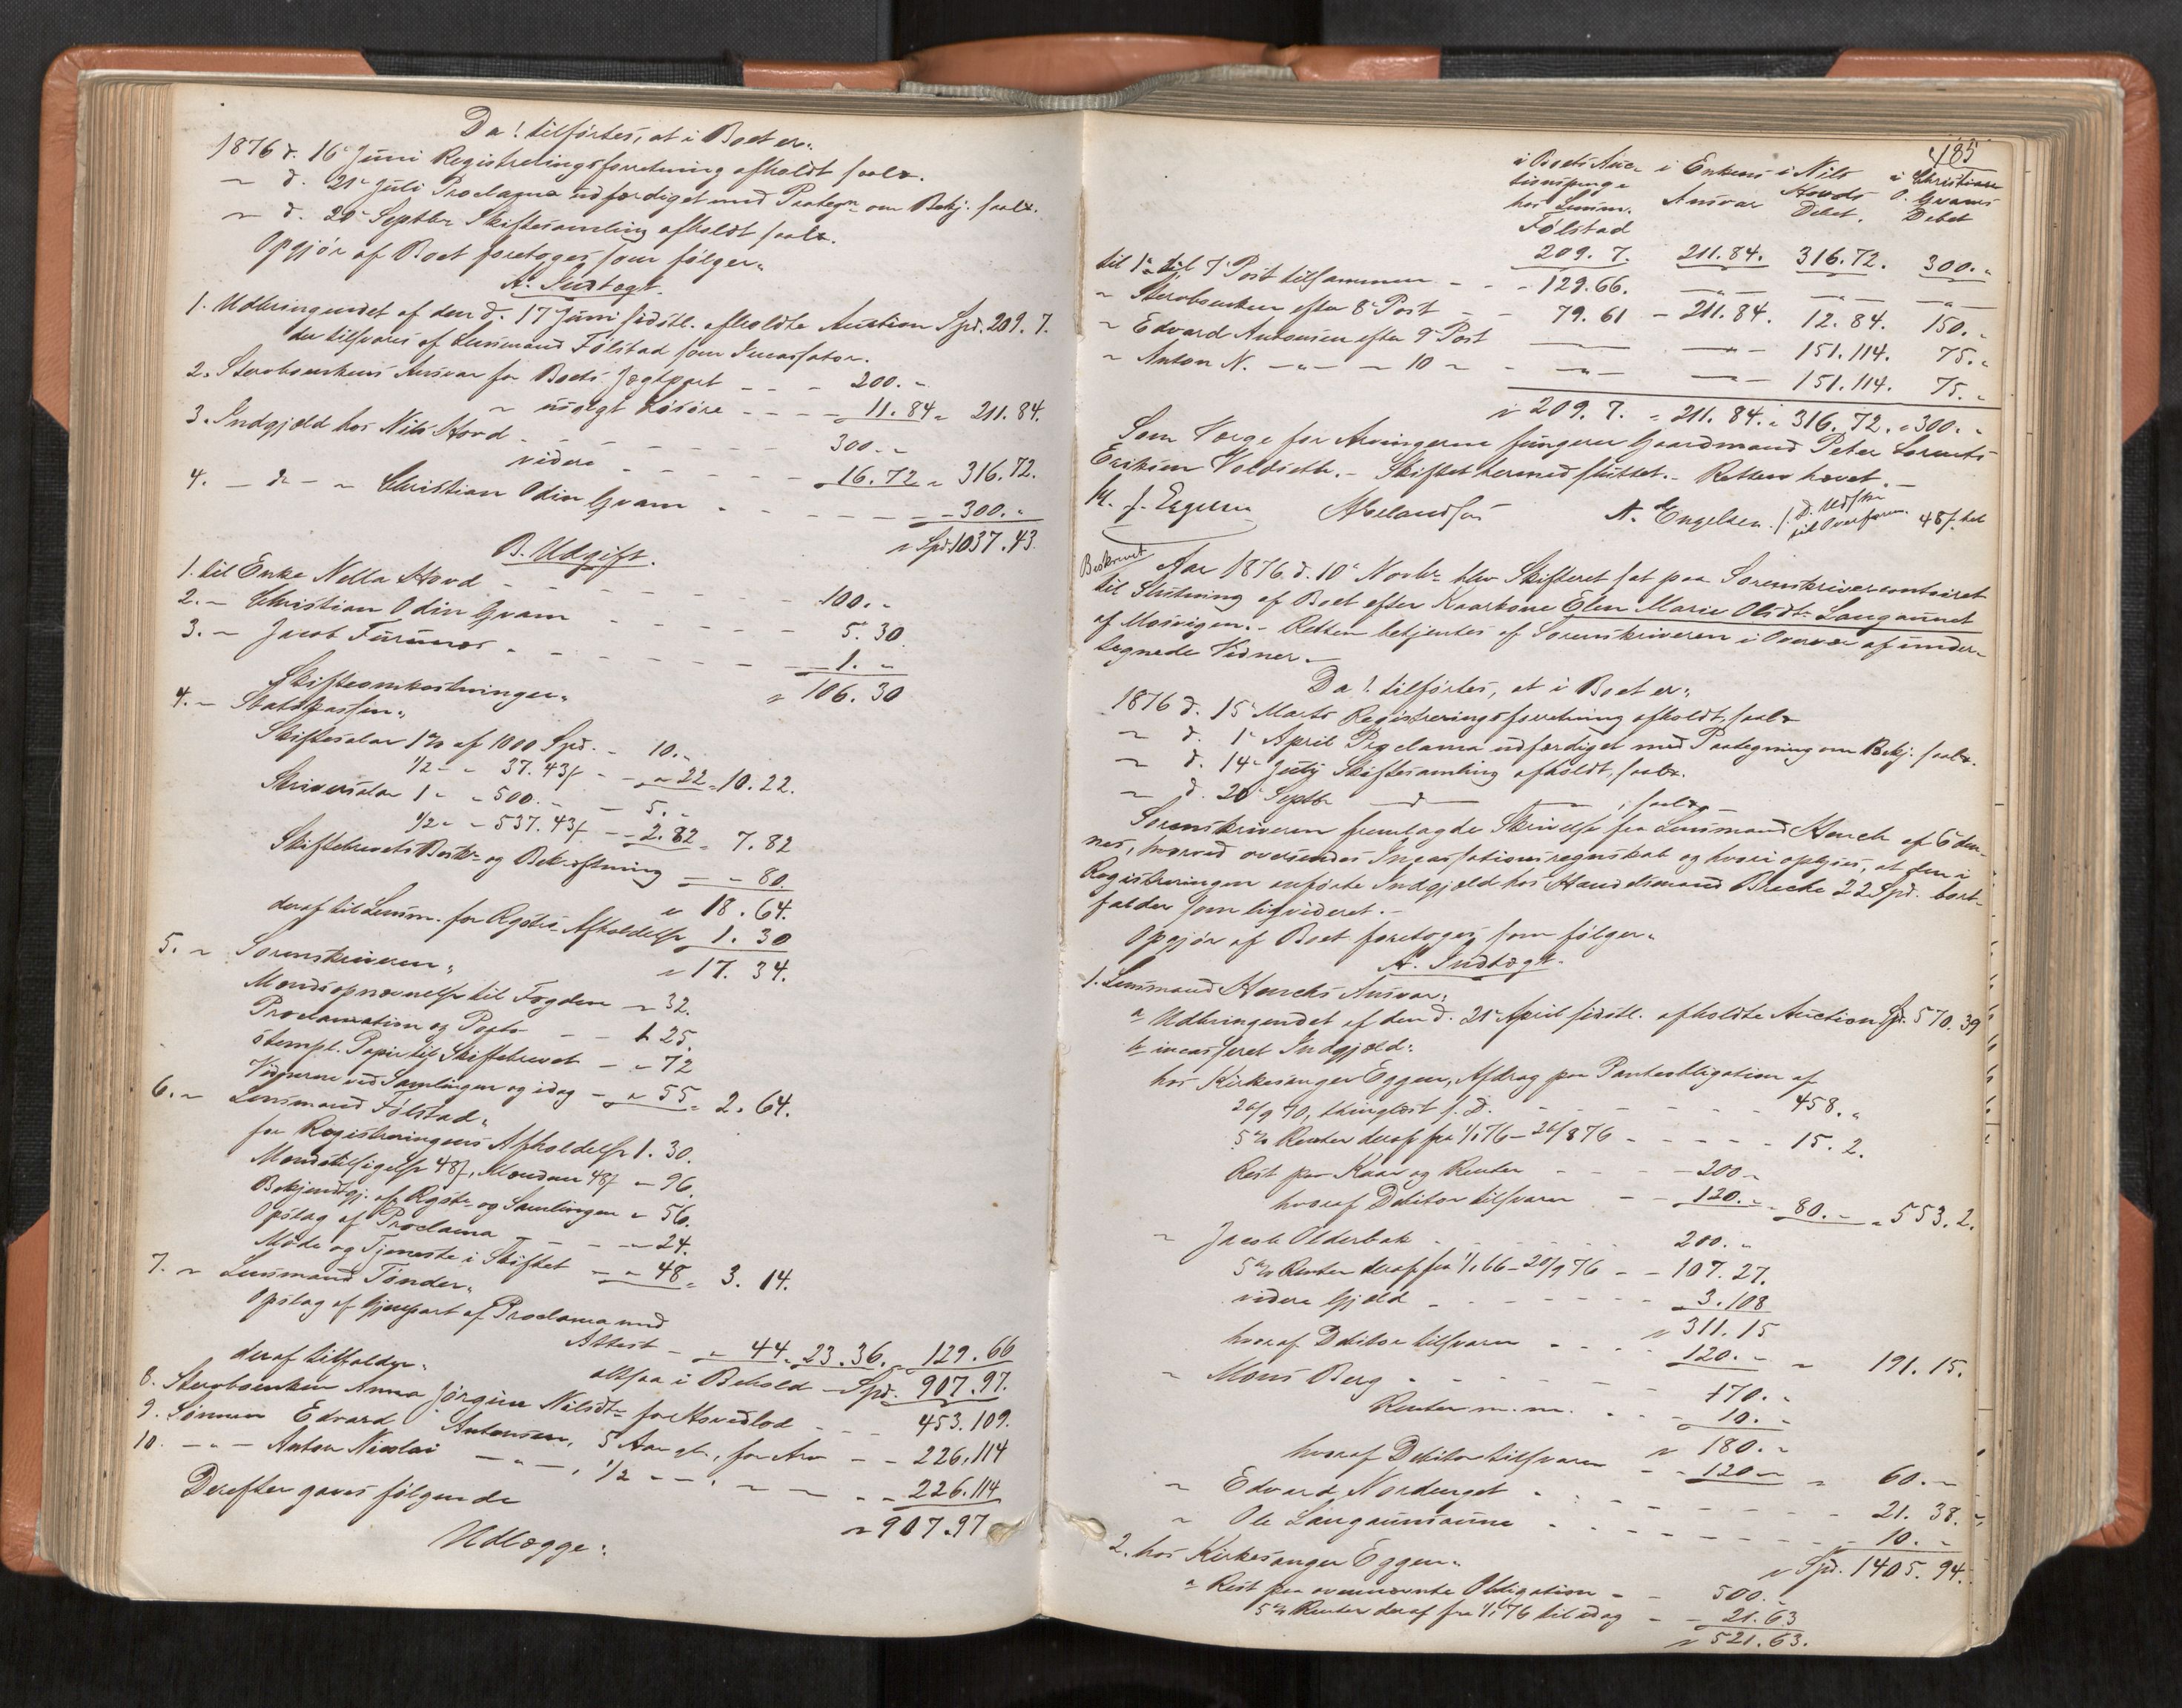 Da! tilførtes, at i Boet er:
1876 d. 16de Juni Registreringsforretning afholdt saal.
" d. 21de Juli Proclama udfærdiget med Paategn. om Bekj. saal.
" d. 20de Septbr Skiftesamling afholdt saal.
Opgjør af Boet foretoges som følger:
A. Indtægt.
1. Udbringendet af den d. 17 Juni sidstl. afholdte Auction Spd. 209. 7.
der tilsvares af Lensmand Følstad som Incassator.
2. Stervboenkens Ansvar for Boets Jagtpart - - - 200. "
" usolgt Løsøre - - - - 11. 84 " 211. 84.
3. Indgjæld hos Nils Hovd - - - - 300. "
videre - - - - - 16. 72 " 316. 72.
4. - d - " Christian Odin Gram - - - - - 300. "
" Spd. 1037. 43.
B. Udgift.
1. til Enke Nella Hovd - - - - - 100. "
2. - Christian Odin Gram - - - - - 5. 30
3. - Jacob Furunes - - - - - - 1. "
" 106. 30
Skifteomkostninger:
4. - Statskassen:
Skiftesalær 1% af 1000 Spd. - 10. "
1/2 - " 37. 43 - - " 22 " 10. 22.
Skriversalær 1 " - 500. " - 5. "
1/2 " - 537. 43 - - 2. 82 " 7. 82
Skiftebrevets Beskr. og Bekræftning - - 80.
" 18. 64.
deraf til Lensm. for Rgstrs. Afholdelse 1. 30
" 17. 34.
5. " Sorenskriveren:
Mændsopnævnelse til Fogden " 32.
Proclamation og Porto - 1. 25.
stempl. Papir til Skiftebrevet - " 72
Vidnerne ved Samlingen og idag - " 55 " 2. 64.
6. " Lensmand Følstad:
for Registreringens Afholdelse 1. 30.
Mændstilsigelse 48, Mændene 48 " 96.
Bekjendtgj. af Rgstr. og Samlingen " 56.
Opslag af Proclama - - - " 24.
Møde og Tjeneste i Skiftet - " 48 " 3. 14.
7. " Lensmand Tønder:
Opslag af Gjenpart af Proclama med
Attest - " 44. 23. 36. " 129. 66
altsaa i Behold - Spd. 907. 97.
deraf tilfalder:
8. Stervboenken Anna Jørgine Nilsdtr for Hovedlod - - - 453. 109.
9. Sønnen Edvard Antonsen, 5 Aar gl., for Arv - - 226. 114
10. - " - Anton Nicolai - " -, 1/2 " - " - - - 226. 114
" 907. 97
Derefter gaves følgende
Udlægge:
485
i Boets Auc- i Enkens i Nils i Christian
tionspenge Ansvar Hovds O. Grams
hos Lensm. Debet. Debet
Følstad
209. 7. 211. 84. 316. 72. 300. "
til 1ste til 7de Post tilsammen - - - 129. 66. - " - - " - - " -
" Stervboenken efter 8de Post - - 79. 61 - 211. 84. 12. 84. 150. "
" Edvard Antonsen efter 9de Post - - - " - 151. 114. 75. "
" Anton N. - " - " 10 " - - " - - " - 151. 114. 75. "
" 209. 7. " 211. 84. " 316. 72. " 300. "
Som Værge for Arvingerne fungerer Gaardmand Peter Lorents
Eriksen Voldseth. - Skiftet hermed sluttet. - Retten hævet. -
M. J. Eggen N. Engelsen. d. Udskr. til Overform. 48 bet
Beskrevet
Aar 1876 d. 10de Novbr. blev Skifteret sat paa Sorenskrivercontoiret
til Slutning af Boet efter Kaarkone Elen Marie Olsdtr Langaunet
af Mosvigen. - Retten betjentes af Sorenskriveren i Overvær af under-
tegnede Vidner. -
Da! tilførtes, at i Boet er:
1876 d. 15de Marts Registreringsforretning afholdt, saal.
" d. 1ste April Proclama udfærdiget med Paategning om Bekj. saal.
" d. 14de July Skiftesamling afholdt, saal.
" d. 20de Septbr - d - - " - , saal. -
Sorenskriveren fremlagde Skrivelse fra Lensmand Hauch af 6 den-
nes, hvorved oversendes Incassationsregnskab og hvori oplyses, at den i
Registreringen anførte Indgjæld hos Handelsmand Brecke 22 Spd. bort-
falder som liqvideret. -
Opgjør af Boet foretoges som følger:
A. Indtægt.
1. Lensmand Hauchs Ansvar:
a Udbringendet af den d. 21de April sidstl. afholdte Auction Spd. 570. 39
b incasseret Indgjæld:
hos Kirkesanger Eggen, Afdrag paa Panteobligation af
26/9 70, thinglæst s. D. - - - - - - 458. "
5% Renter deraf fra 1/1 76 - 26/8 76 - - - - 15. 2.
Rest paa Kaar og Renter - - - - 200 "
hvoraf Debitor tilsvarer - - 120. " " 80. " " 553. 2.
" Jacob Olderbak - - - - - 200. "
5% Renter deraf fra 1/1 66 - 20/9 76 - - 107. 27.
videre Gjæld - - - - - - 3. 108
" 311. 15
hvoraf Debitor tilsvarer - - - 120. " " 191. 15.
" Mons Berg - - - - - - 170. "
Renter m. m. - - - 10. "
" 180. "
hvoraf Debitor tilsvarer - - 120 " " 60. "
" Edvard Nordenget - - - - - - - 21. 38.
" Ole Langaunsaune - - - - - - - 10. "
" Spd. 1405. 94.
2. hos Kirkesanger Eggen:
a Rest paa ovennævnte Obligation - - 500. "
5% Renter deraf fra 1/1 76 til idag - - 21. 63
" 521. 63.